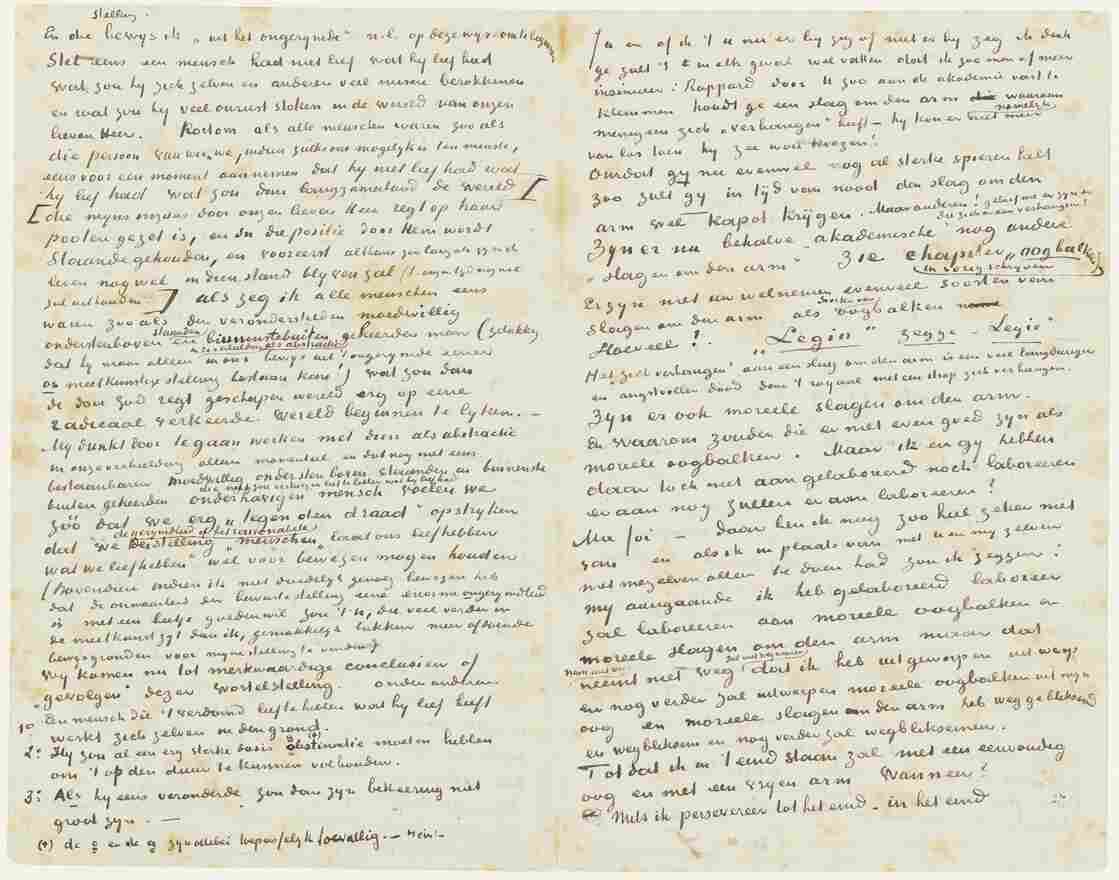 stelling.
En die bewijs ik „uit het ongerijmde” n.l. op deze wijs om te beginnen
Stel eens een mensch had niet lief wat hij lief had
wat zou hij zich zelven en anderen veel misère berokkenen
en wat zou hij veel onrust stoken in de wereld van onzen
lieven Heer. Kortom als alle menschen waren zoo als
die persoon van wien we, indien zulks ons mogelijk is ten minste,
eens voor een moment aannemen dat hij niet lief had wat
hij lief had wat zou dan langzamerhand de wereld
[die mijns inziens door onzen lieven Heer regt op haar
pooten gezet is, en in die positie door Hem wordt
staande gehouden, en vooreerst althans zoo lang als gij en ik
leven nog wel in dien stand blijven zal (t onzen tijd nog wel
zal uithouden] als zeg ik alle menschen eens
waren zoo als die veronderstelden moedwillig
onderstboven staanden en binnenstebuiten gekeerden man (gelukkig
in zoo onbestaanbare als abstractie
dat hij maar alleen in ons bewijs uit 't ongerijmde eener
meetkunstige stelling bestaan kan!) wat zou dan
de door God regt geschapen wereld erg op eene
radicaal verkeerde wereld beginnen te lijken. –
Mij dunkt door te gaan werken met dien als abstractie
in onze verbeelding alleen momentaal en dat nog niet eens
bestaanbaren moedwillig ondersten boven staanden en binnenste
buiten gekeerden onderhavigen mensch voelen we
zóó dat we erg „tegen den draad” opstrijken
de gerijmdheid of het rationabele
dat we de stelling „menschen laat ons liefhebben
wat we liefhebben” wel voor bewezen mogen houden
(Bovendien indien ik niet duidelijk genoeg bewezen heb
dat de onwaarheid der bewuste stelling eene enorme ongerijmdheid
is met een beetje goeden wil zou 't U, die veel verder in
de meetkunst zijt dan ik, gemakkelijk lukken meer afdoende
bewijsgronden voor mijne stelling te vinden)
Wij komen nu tot merkwaardige conclusien of
„gevolgen” dezer wortelstelling. onder anderen
1o Een mensch die 't verdomd lief te hebben wat hij lief heeft
werkt zich zelven in den grond.
2o. Hij zou al een erg sterke dosis obstinatie moeten hebben
om 't op den duur te kunnen volhouden.
3o. Als hij eens veranderde zou dan zijn bekeering niet
groot zijn. —
(+) de o en de g zijn allebei toepasselijk toevallig. –
Ja en of ik 't U nu er bij zeg of niet er bij zeg ik denk
ge zult 't in elk geval wel vatten dat ik zoo min of meer
insinueer: Rappard door U zoo aan de akademie vast te
klemmen houdt ge een slag om den arm waaraan
menigeen zich „verhangen” heeft – hij kon er namelijk niet meer
van los toen hij zee wou kiezen!
Omdat gij nu evenwel nog al sterke spieren hebt
zoo zult gij in tijd van nood den slag om den
arm wel kapot krijgen. Maar anderen! geloof me er zijn er
die zich er aan verhangen!
Zijn er nu behalve „akademische” nog andere
„slagen om den arm” zie chapiter „oogbalken”
in vorig schrijven
Er zijn met uw welnemen evenveel soorten van
slagen om den arm als soorten van oogbalken
Hoeveel! „Legio” zegge – Legio”
Het zich verhangen aan een slag om den arm is een veel langduriger
en angstvoller dood dan 't royaal met een strop zich verhangen.
Zijn er ook moreele slagen om den arm.
En waarom zouden die er niet even goed zijn als
moreele oogbalken. Maar ik en gij hebben
daar toch niet aan gelaboreerd noch laboreeren
er aan nog zullen er aan laboreeren?
Ma foi – daar ben ik nog zoo heel zeker niet
van en als ik in plaats van met U en mij zelven
met mezelven alleen te doen had zou ik zeggen:
mij aangaande ik heb gelaboreerd laboreer
zal laboreeren aan moreele oogbalken en
moreele slagen om den arm maar dat
neemt niet weg dat ik heb uitgeworpen uitwerp
en nog verder zal uitwerpen moreele oogbalken uit mijn
oog en moreele slagen om den arm heb weggebliksemd
en wegbliksem en nog verder zal wegbliksemen.
Tot dat ik in 't eind staan zal met een eenvoudig
oog en met een vrijen arm Wanneer?
Mits ik persevereer tot het eind – in het eind